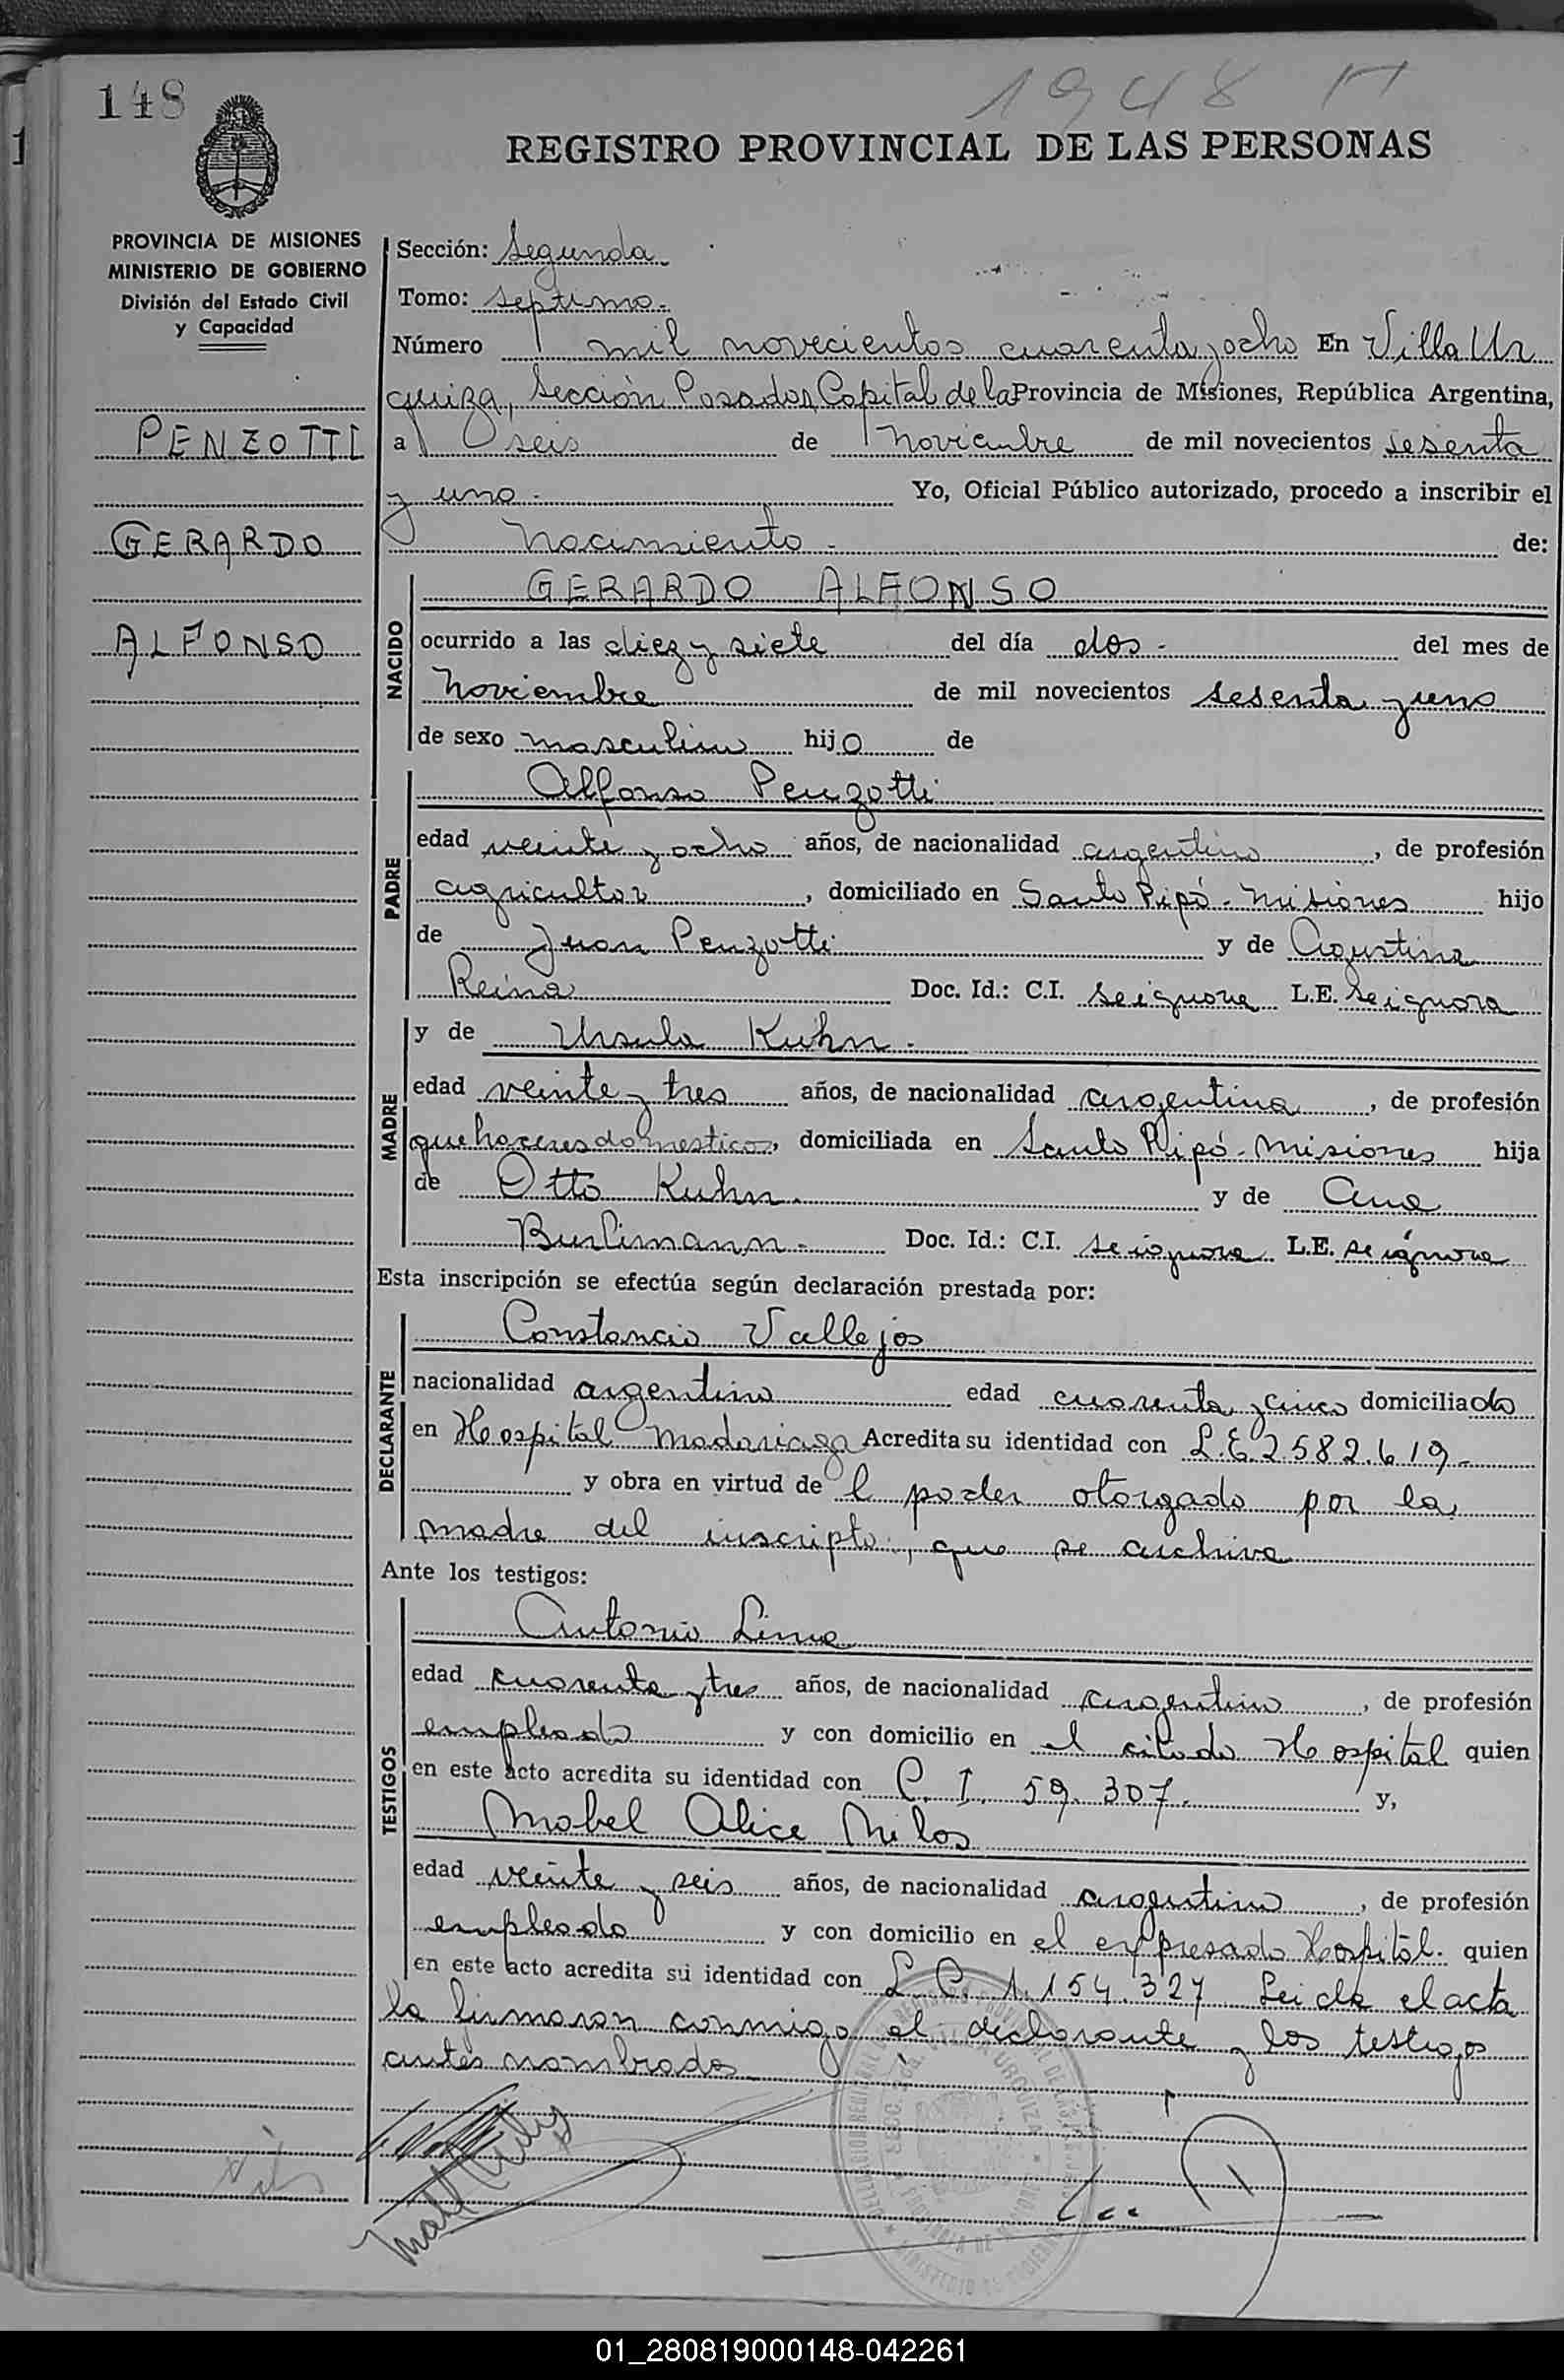 148
1948 N
REGISTRO PROVINCIAL DE LAS PERSONAS
PROVINCIA DE MISIONES
MINISTERIO DE GOBIERNO
División del Estado Civil
y Capacidad
PENZOTTI
GERARDO
ALFONSO
Sección: Segunda
Tomo: septimo.
Número mil novecientos cuarenta y ocho En Villa Ur
quiza, Sección Posadas, Capital de la Provincia de Misiones, República Argentina,
a seis de Noviembre de mil novecientos sesenta
y uno. Yo, Oficial Público autorizado, procedo a inscribir el
Nacimiento. de:
NACIDO
GERARDO ALFONSO
ocurrido a las diez y siete del día dos. del mes de
Noviembre de mil novecientos sesenta y uno
de sexo masculino hijo de
PADRE
Alfonso Penzotti
edad veinte y ocho años, de nacionalidad argentino, de profesión
agricultor, domiciliado en Santo Pipó. Misiones hijo
de Juan Penzotti y de Agustina
Reina Doc. Id.: C.I. se ignora L.E. se ignora
MADRE
y de Ursula Kuhn.
edad veinte y tres años, de nacionalidad argentina, de profesión
quehaceres domestico, domiciliada en Santo Pipó. Misiones hija
de Otto Kuhn. y de Ana
Burlimann. Doc. Id.: C.I. se ignora L.E. se ignora
Esta inscripción se efectúa según declaración prestada por:
DECLARANTE
Constancio Vallejos
nacionalidad argentino edad cuarenta y cinco domiciliado
en Hospital Madariaga Acredita su identidad con L.E. 2.582.619.
y obra en virtud de l poder otorgado por la
madre del inscripto, que se archiva
Ante los testigos:
TESTIGOS
Antonio Lima
edad cuarenta y tres años, de nacionalidad argentino, de profesión
empleado y con domicilio en el citado Hospital quien
en este acto acredita su identidad con C. I. 59.307. y,
Mabel Alice Milos
edad veinte y seis años, de nacionalidad argentina, de profesión
empleada y con domicilio en el expresado Hospital. quien
en este acto acredita su identidad con L. C. 1.154.327 Leida el acta
la firmaron conmigo el declarante y los testigos
antes nombrados
01_280819000148-042261